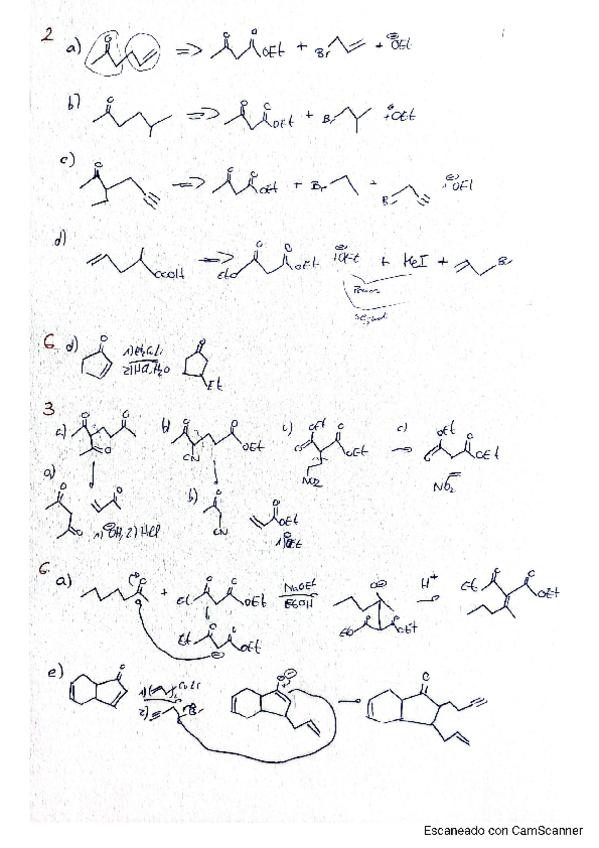 2
a) O => O O OEt + Br + ⊖OEt
b) O => O O OEt + Br + ⊖OEt
c) O => O O OEt + Br + Br ⊖OEt
d) COOH => EtO O O OEt ⊖OEt + MeI + Br
6. d) O 1) Et2CuLi 2) HCl, H2O O Et
3
a) O O O b) O CN O OEt c) O OEt O OEt NO2 → c) O OEt O OEt NO2
a) O O O 1) ⊖OH, 2) HCl b) O CN O OEt 1) ⊖OEt
6.
a) O + Et O O OEt NaOEt EtOH O⊖ EtO O O OEt H+ Et O O OEt
Et O O OEt ⊖
e) O 1) ( )2 CuLi 2) Br O⊖ → O
Escaneado con CamScanner